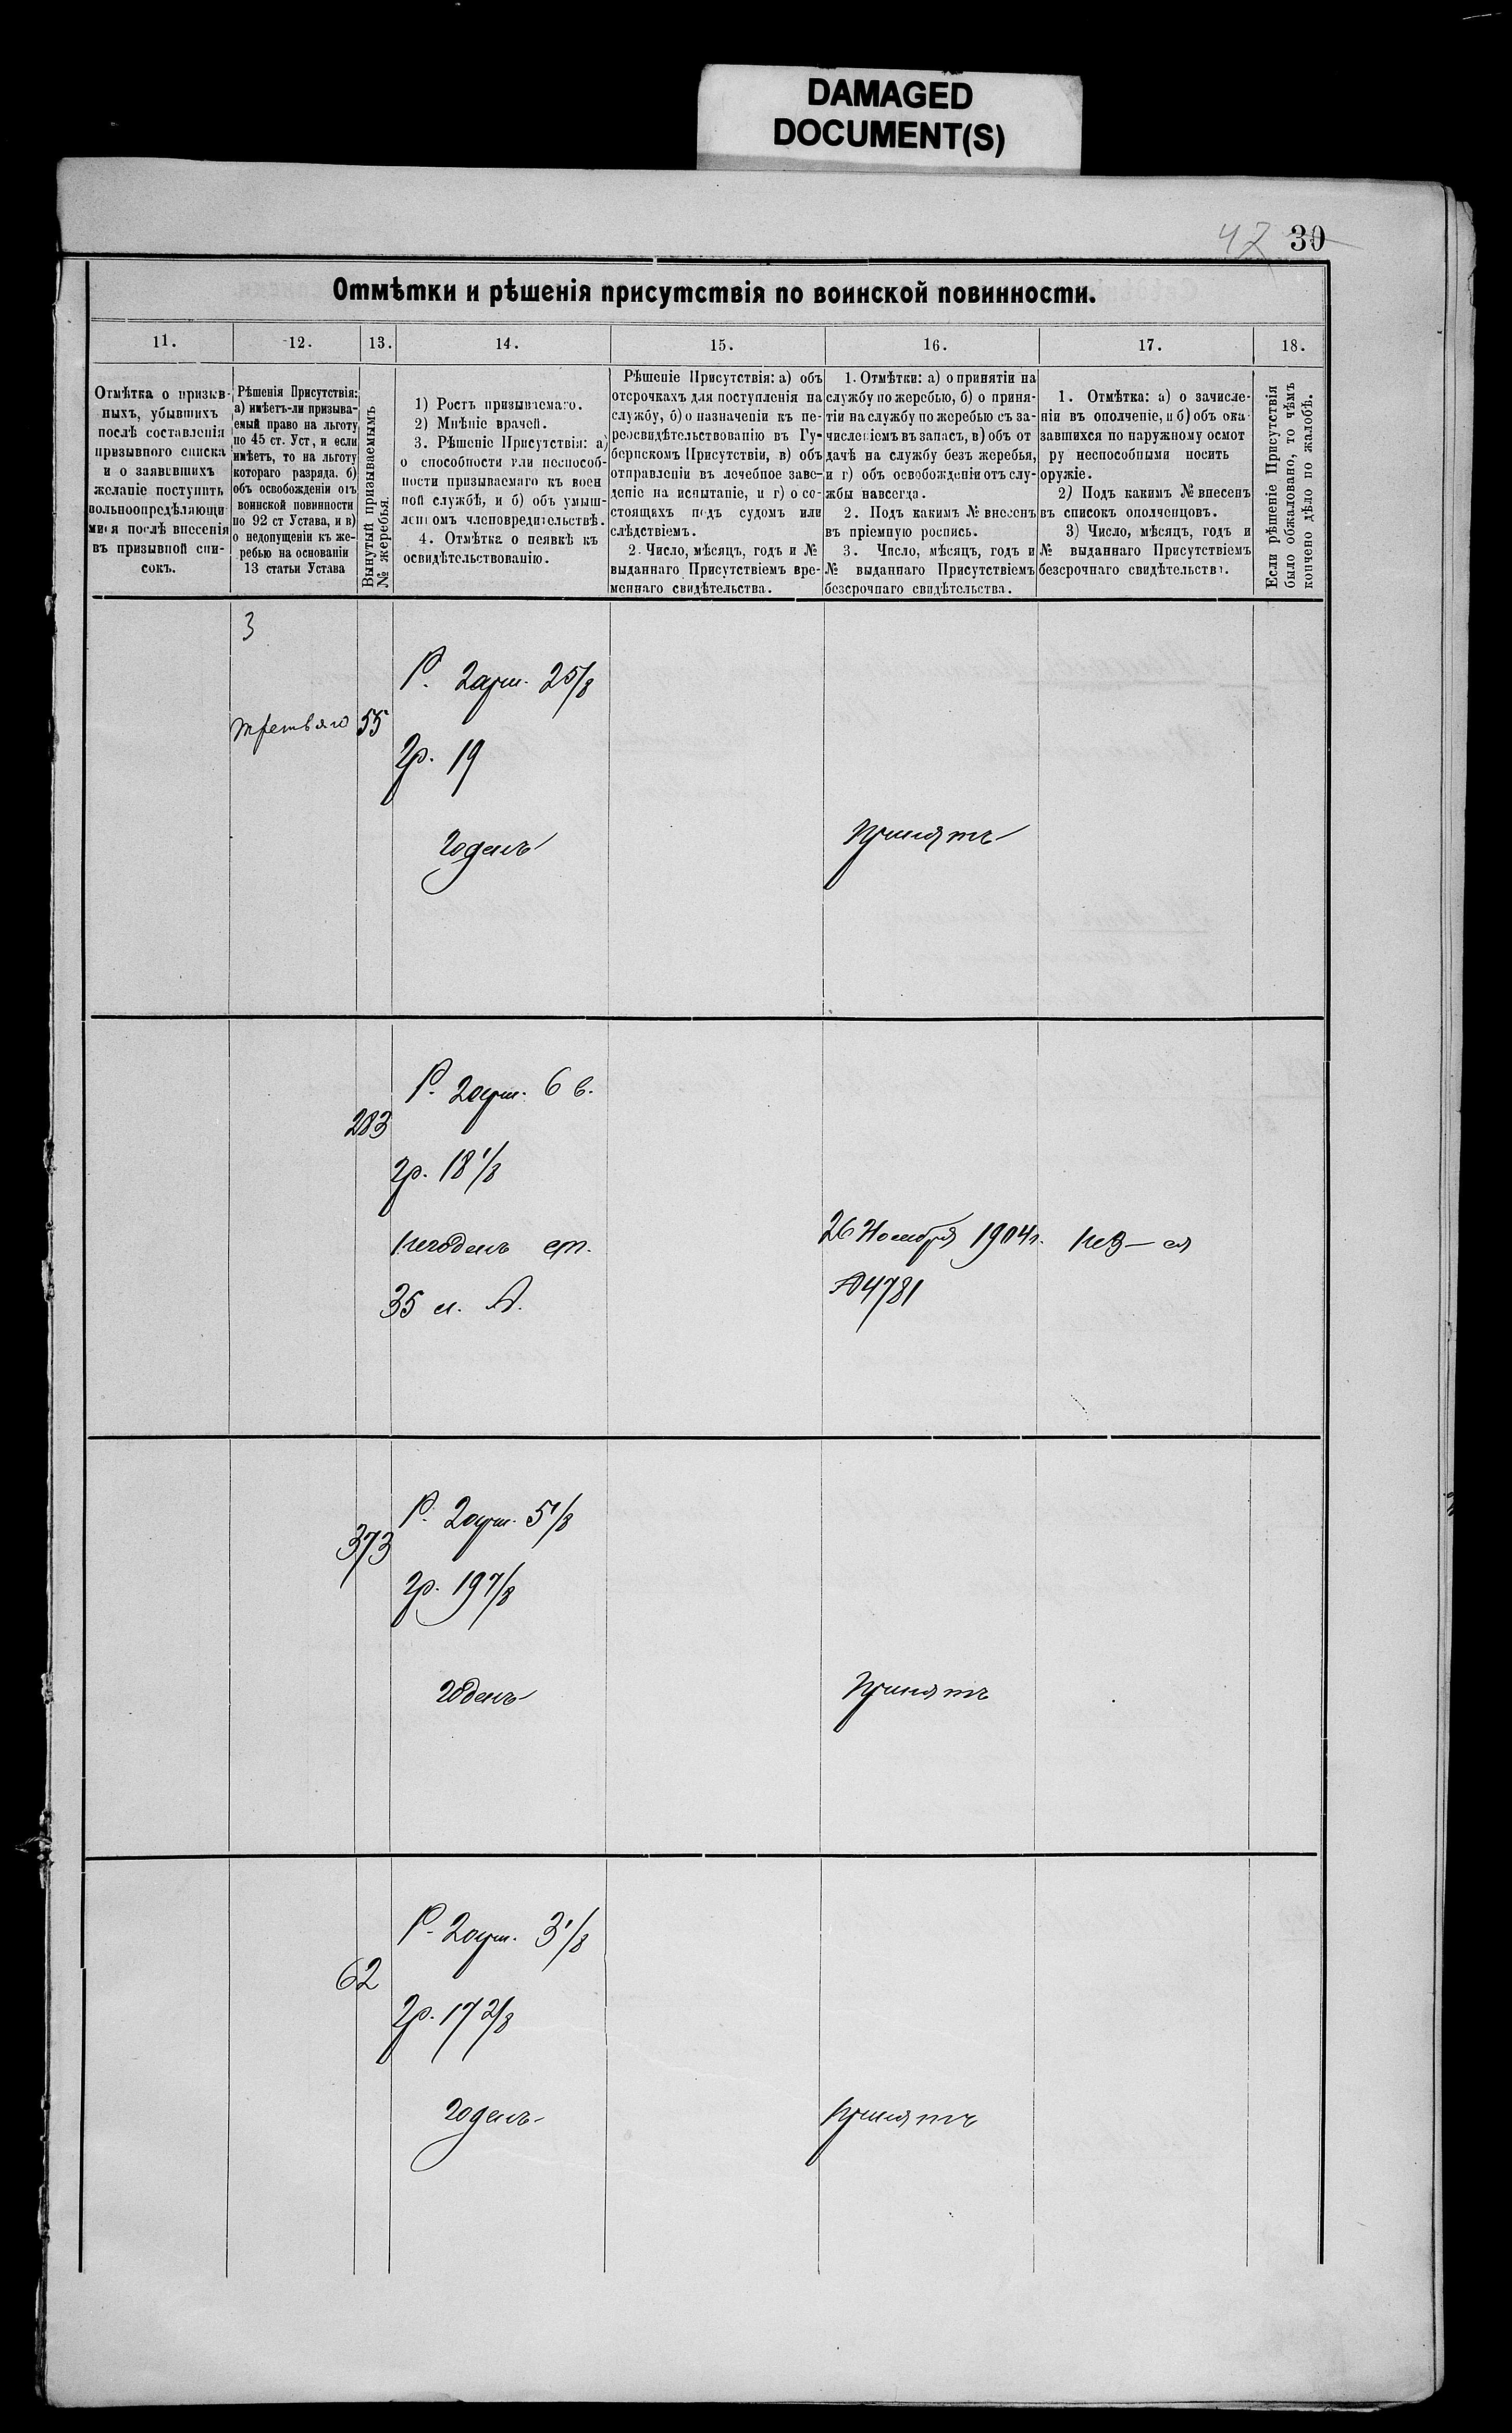 DAMAGED
DOCUMENT(S)
42 30
Отмѣтки и рѣшенія присутствія по воинской повинности.
11.
12.
13.
14.
15.
16.
17.
18.
Отмѣтка о призыв-
ныхъ, убывшихъ
послѣ составленія
призывного списка
и о заявившихъ
желаніе поступить
вольноопредѣляющи
мися послѣ внесенія
въ призывной спи-
сокъ.
Рѣшенія Присутствія:
а) имѣетъ-ли призыва-
емый право на льготу
по 45 ст. Уст, и если
имѣетъ, то на льготу
котораго разряда. б)
объ освобожденіи отъ
воинской повинности
по 92 ст Устава, и в)
о недопущеніи къ же-
ребью на основаніи
13 статьи Устава
Вынутый призываемымъ
№ жеребья.
1) Ростъ призываемаго.
2) Мнѣніе врачей.
3. Рѣшеніе Присутствія: а)
о способности или неспособ-
ности призываемаго къ воен
ной службѣ, и б) объ умыш-
леномъ членовредительствѣ.
4. Отмѣтка о неявкѣ къ
освидѣтельствованію.
Рѣшеніе Присутствія: а) объ
отсрочкахъ для поступленія на
службу, б) о назначеніи къ пе-
реосвидѣтельствованію въ Гу-
бернскомъ Присутствіи, в) объ
отправленіи въ лечебное заве-
деніе на испытаніе, и г) о со-
стоящихъ подъ судомъ или
слѣдствіемъ.
2. Число, мѣсяцъ, годъ и №
выданнаго Присутствіемъ вре-
меннаго свидѣтельства.
1. Отмѣтки: а) о принятіи на
службу по жеребью, б) о приня-
тіи на службу по жеребью съ за-
численіемъ въ запасъ, в) объ от
дачѣ на службу безъ жеребья,
и г) объ освобожденіи отъ слу-
жбы навсегда.
2. Подъ какимъ № внесенъ
въ пріемную роспись.
3. Число, мѣсяцъ, годъ и
№ выданнаго Присутствіемъ
безсрочнаго свидѣтельства.
1. Отмѣтка: а) о зачисле-
ніи въ ополченіе, и б) объ ока
завшихся по наружному осмот
ру неспособными носить
оружіе.
2) Подъ какимъ № внесенъ
въ списокъ ополченцовъ.
3) Число, мѣсяцъ, годъ и
№ выданнаго Присутствіемъ
безсрочнаго свидѣтельства.
Если рѣшеніе Присутствія
было обжаловано, то чѣмъ
кончено дѣло по жалобѣ.
3
третьяго
55
Р. 2 арш. 2 5/8
гр. 19
годенъ
принятъ
283
Р. 2 арш. 6 в.
гр. 18 1/8
негоденъ ст.
35 л. А.
26 Ноября 1904 г.
№ 4781
373
Р. 2 арш. 5 1/8
гр. 19 7/8
годенъ
принятъ
62
Р. 2 арш. 3 1/8
гр. 17 2/8
годенъ
принятъ